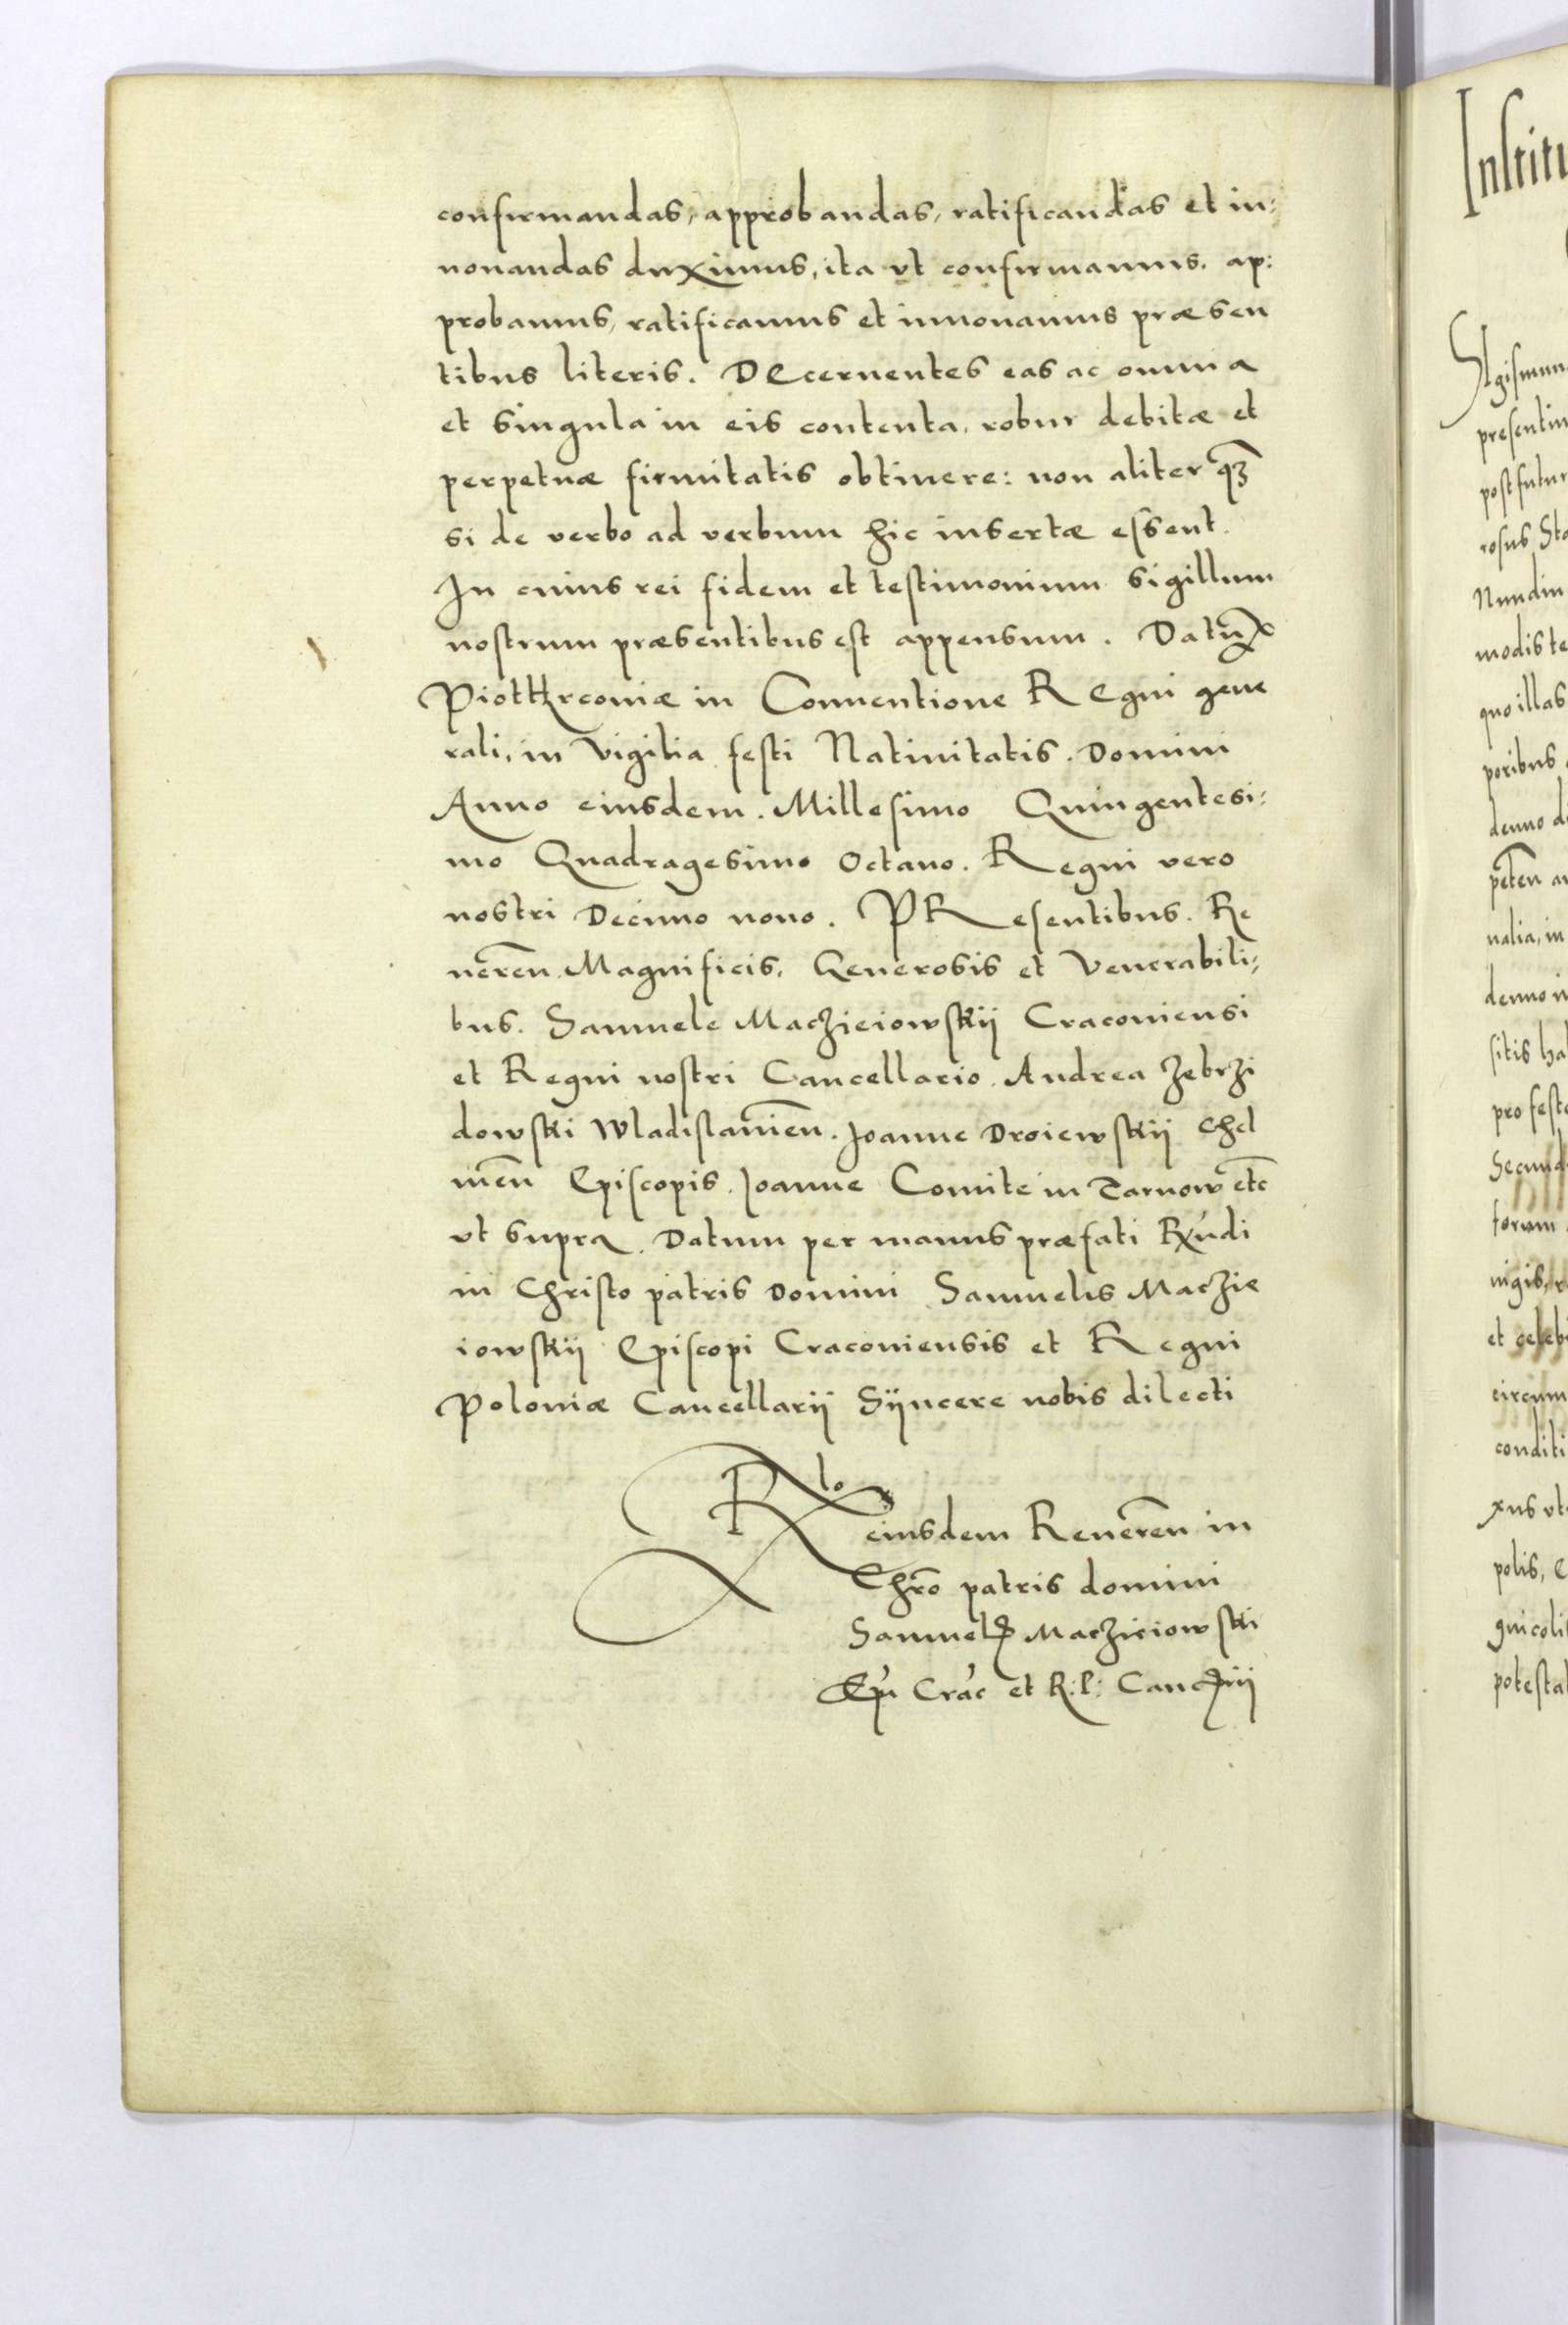 confirmandas, approbandas, ratificandas et in:
nouandas duximus, ita vt confirmamus. ap:
probamus, ratificamus et innouamus præsen
tibus literis. DEcernentes eas ac omnia
et singula in eis contenta, robur debitæ et
perpetuæ firmitatis obtinere: non aliter q̃ꝫ
si de verbo ad verbum hic insertæ essent.
In cuius rei fidem et testimonium sigillum
nostrum præsentibus est appensum. Datũ
Piotthrconiæ in Conuentione REgni gene
rali, in Vigilia festi Natiuitatis. Domini
Anno eiusdem. Millesimo Quingentesi:
mo Quadragesimo Octauo. Regni vero
nostri Decimo nono. PResentibus. Re
ueren̄. Magnificis, Generosis et Venerabili:
bus. Samuele Maczieiowskij Cracouiensi
et Regni nostri Cancellario. Andrea Zebrzi
dowski Wladislauien̄. Joanne Droiewskij Chel
men̄ Episcopis. Joanne Comite in Tarnow etc̄
vt supra. Datum per manus præfati Rxndi
in Christo patris Domini Samuelis Maczie
iowskij Episcopi Cracouiensis et Regni
Poloniæ Cancellarij Sijncere nobis dilecti
Rlo
eiusdem Reueren̄ in
Chr̄o patris domini
Samuelꝭ Maczieiowski
Epi Crac et R: P: Cancrij
Institu
SIgismun
presentiu
post futur
rosus Sta
Nundin
modis te
quo illas
poribus
denuo de
peten̄ an
nalia, in
denuo in
sitis ha
pro feste
Secund
forum
nigis,
et celeb
circum
conditi
xus vt
polis, e
qui coli
potestat